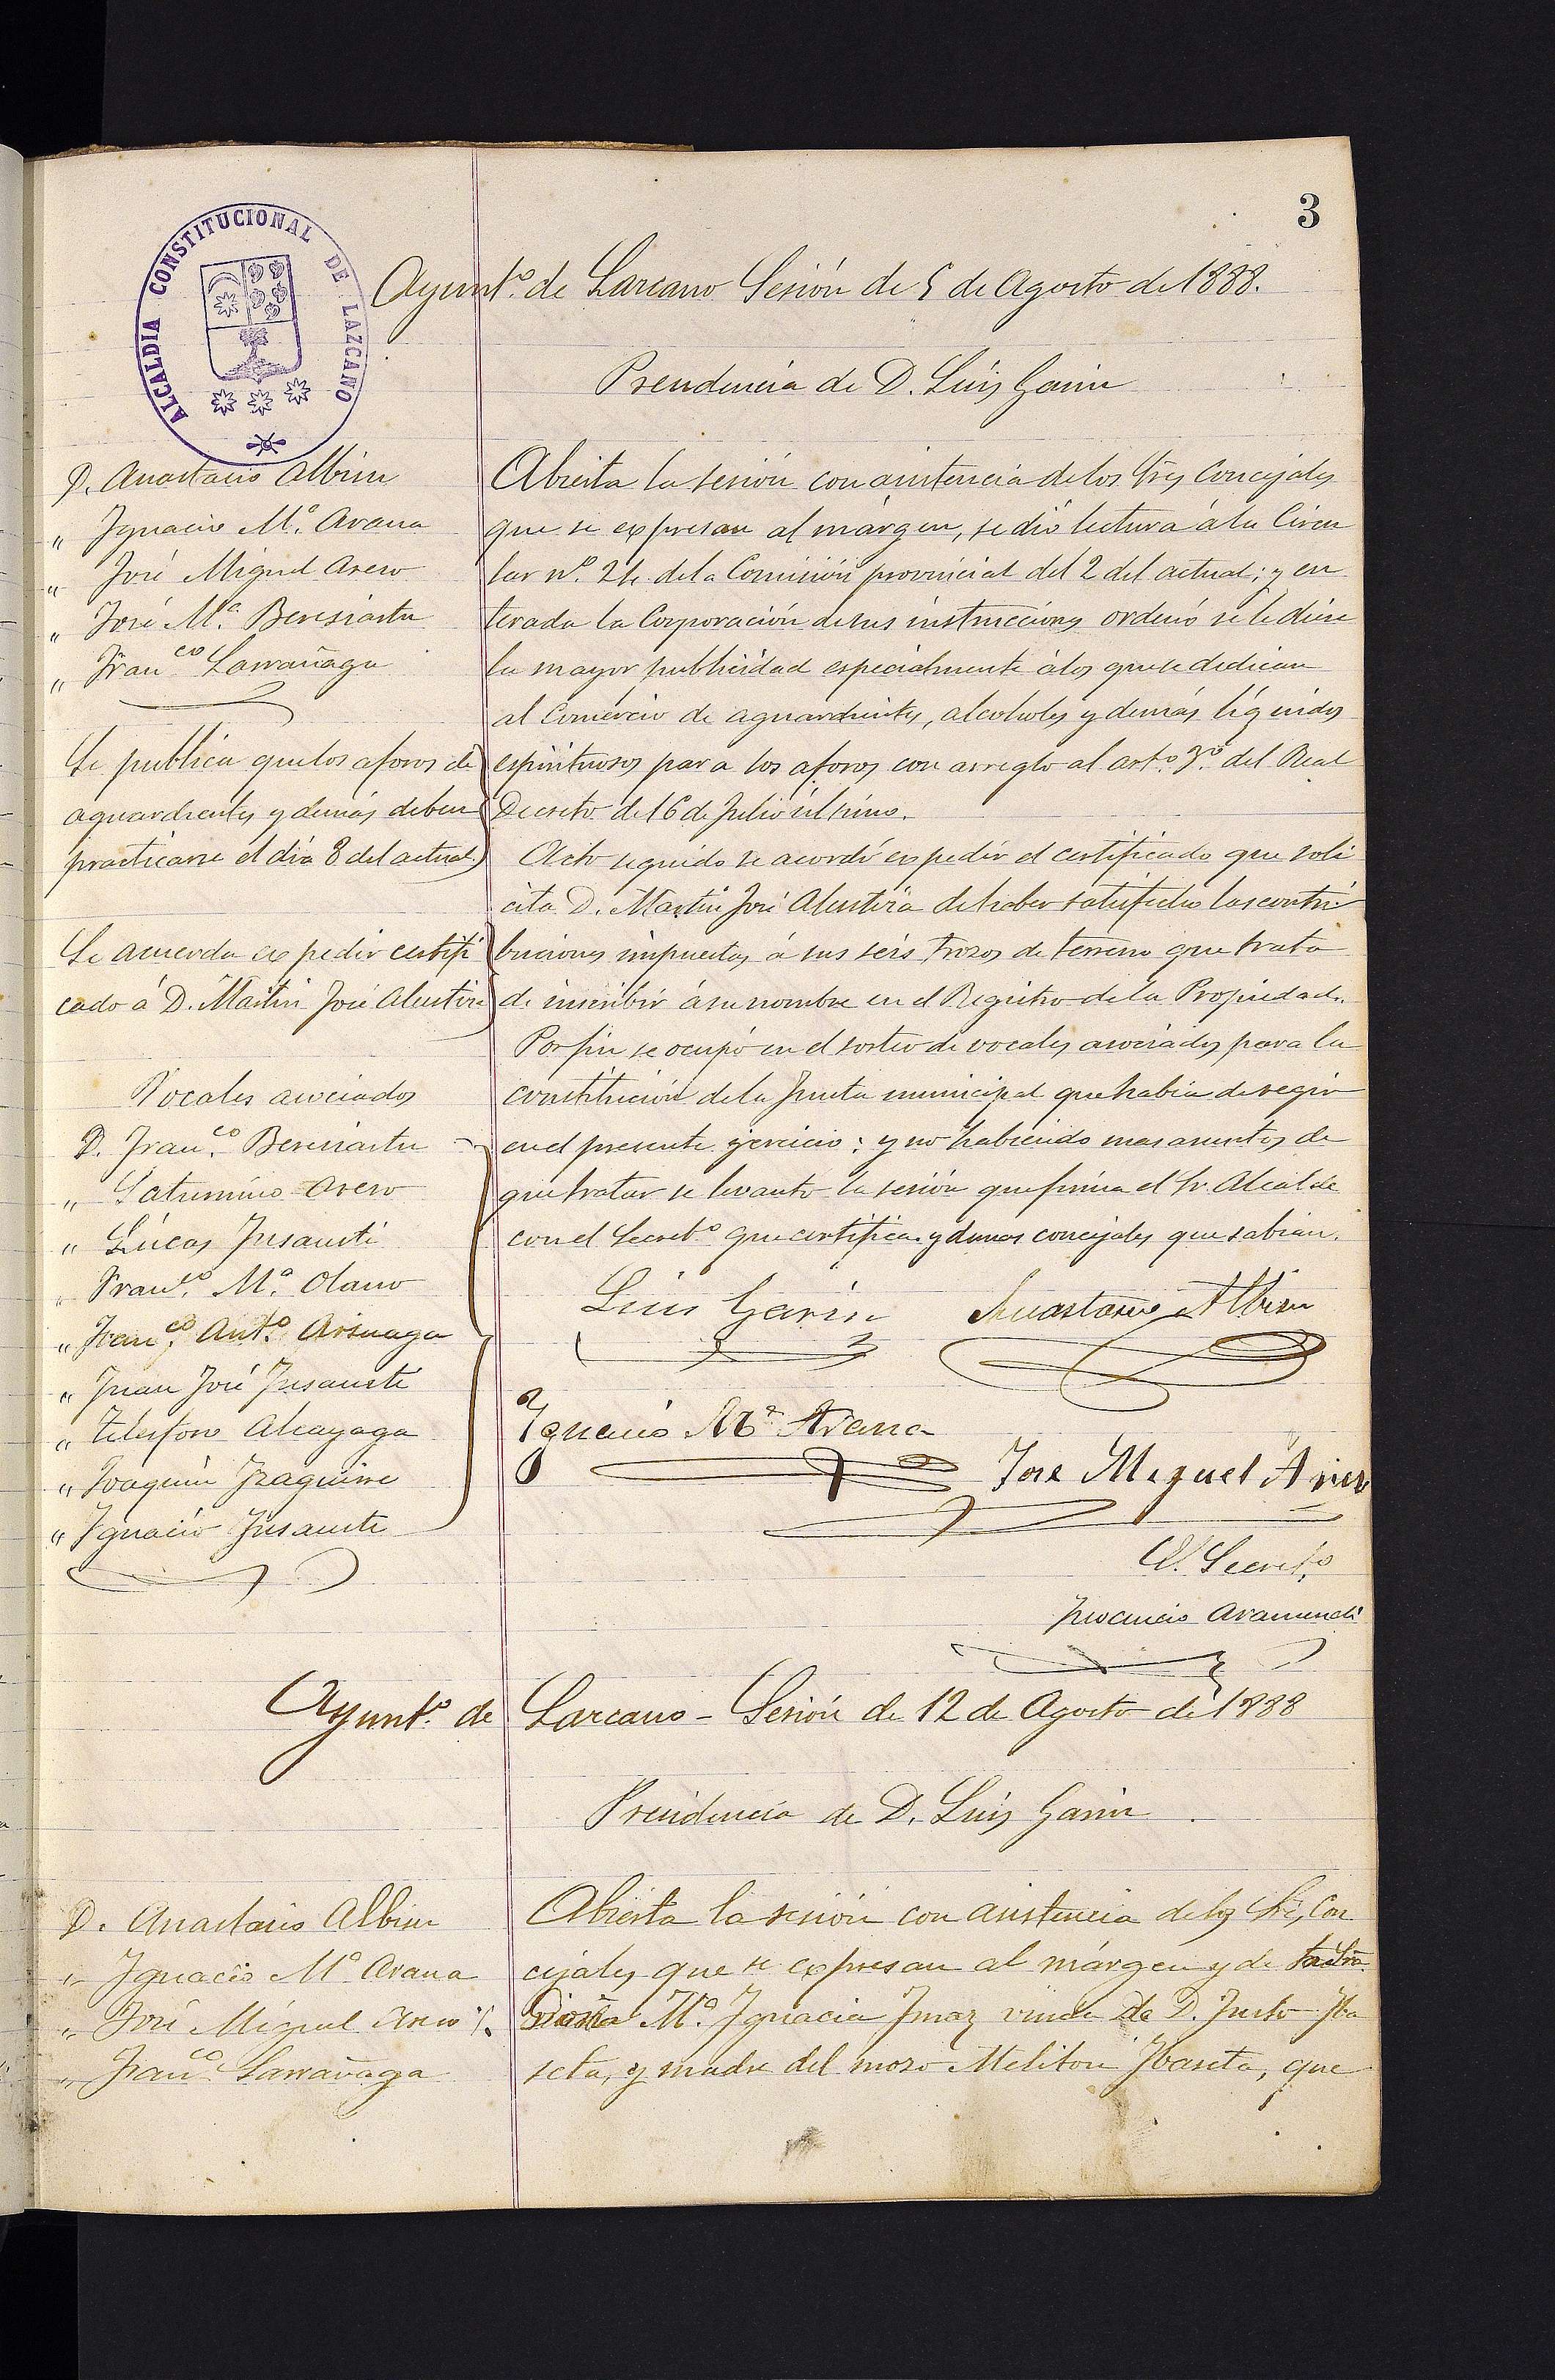 3
ALCALDIA CONSTITUCIONAL DE LAZCANO
Ayunt.º de Lazcano Sesión de 5 de Agosto de 1888.
Presidencia de D. Luis Garin
D. Anastacio Albisu
" Ignacio M.ª Arana
" José Miguel Arero
" José M.ª Beresiartu
" Fran.co Larrañaga
Se publica que los aforos de
aguardientes y demás deben
practicarse el dia 8 del actual.
Se acuerda expedir certifi
cado á D. Martin José Alustiza
Vocales asociados
D. Fran.co Beresiartu
" Saturnino Arero
" Lúcas Insausti
" Fran.co M.ª Olano
" Fran.co Ant.º Arsuaga
" Juan José Insausti
" Telesforo Alcayaga
" Joaquin Izaguirre
" Ignacio Insausti
Abierta la sesión con asistencia de los Sres Concejales
que se expresan al márgen, se dió lectura á la Circu
lar nº. 24 de la Comisión provincial del 2 del actual; y en
terada la Corporación de sus instrucciones ordenó se le diese
la mayor publicidad especialmente á los que se dedican
al Comercio de aguardientes, alcoholes y demás líquidos
espirituosos para los aforos con arreglo al art.º 3.º del Real
Decreto de 16 de Julio último.
Acto seguido se acordó expedir el certificado que soli
cita D. Martin José Alustiza de haber satisfecho las contri
buciones impuestas á sus seis trozos de terreno que trata
de inscribir á su nombre en el Registro de la Propiedad.
Por fin se ocupó en el sorteo de vocales asociados para la
constitución de la Junta municipal que habia de regir
en el presente ejercicio: y no habiendo mas asuntos de
que tratar se levantó la sesión que firma el Sr. Alcalde
con el Secret.º que certifica y demas concejales que sabian.
Luis Garin Anastasio Albisu
Ignacio M.ª Arana
José Miguel Arero
El Secret.º
Inocencio Aramendi
Ayunt.º de Lazcano - Sesión de 12 de Agosto de 1888
Presidencia de D. Luis Garin
D. Anastasio Albisu
" Ignacio M.ª Arana
" José Miguel Arero
" Fran.co Larrañaga
Abierta la sesión con asistencia de los Sres. Con
cejales que se expresan al márgen y de
Doña M.ª Ignacia Imaz viuda de D. Justo Iba
seta, y madre del mozo Meliton Ibaseta, que